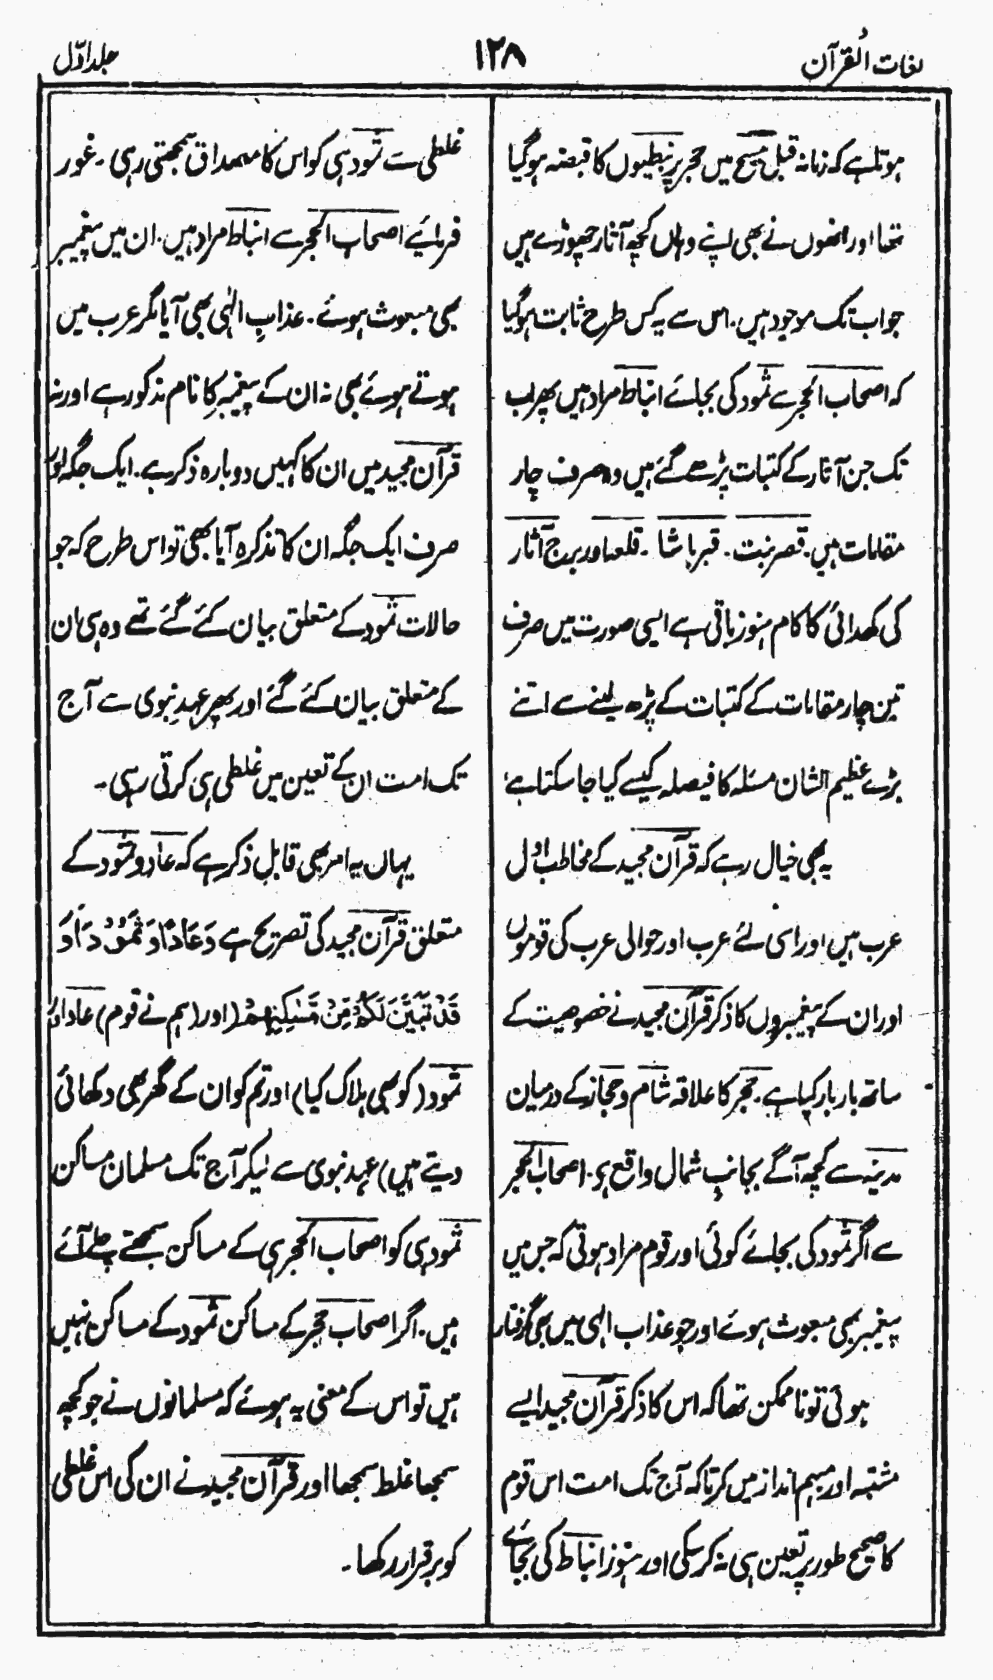 لغات القرآن
۱۲۸
جلد اوّل
ہوتا ہے کہ زمانہ قبل مسیح میں حجر پر نبطیوں کا قبضہ ہوگیا
تھا اور انھوں نے بھی اپنے وہاں کچھ آثار چھوڑے ہیں
جو اب تک موجود ہیں۔ اس سے یہ کس طرح ثابت ہوگیا
کہ اصحاب الحجر سے ثمود کی بجائے انباط مراد ہیں پھر اب
تک جن آثار کے کتبات پڑھے گئے ہیں وہ صرف چار
مقامات ہیں۔ قصر بنت۔ قبر باشا۔ قلعہ اور برج آثار
کی کھدائی کا کام ہنوز باقی ہے ایسی صورت میں صرف
تین چار مقامات کے کتبات کے پڑھ لینے سے اتنے
بڑے عظیم الشان مسئلہ کا فیصلہ کیسے کیا جا سکتا ہے؛
یہ بھی خیال رہے کہ قرآن مجید کے مخاطب اول
عرب ہیں اور اسی لئے عرب اور حوالی عرب کی قوموں
اور ان کے پیغمبروں کا ذکر قرآن مجید نے خصوصیت کے
ساتھ بار بار کیا ہے۔ حجر کا علاقہ شام و حجاز کے درمیان
مدینہ سے کچھ آگے بجانبِ شمال واقع ہی۔ اصحاب الحجر
سے اگر ثمود کی بجائے کوئی اور قوم مراد ہوتی کہ جس میں
پیغمبر بھی مبعوث ہوئے اور جو عذاب الہی میں بھی گرفتار
ہوئی تو ناممکن تھا کہ اس کا ذکر قرآن مجید ایسے
مشتبہ اور مبہم انداز میں کرتا کہ آج تک امت اس قوم
کا صحیح طور پر تعین ہی نہ کر سکی اور ہنوز انباط کی بجائے
غلطی سے ثمود ہی کو اس کا مصداق سمجھتی رہی۔ غور
فرمائیے اصحاب الحجر سے انباط مراد ہیں۔ ان میں پیغمبر
بھی مبعوث ہوئے۔ عذابِ الٰہی بھی آیا مگر عرب میں
ہوتے ہوئے بھی نہ ان کے پیغمبر کا نام مذکور ہے اور نہ
قرآن مجید میں ان کا کہیں دوبارہ ذکر ہے۔ ایک جگہ اور
صرف ایک جگہ ان کا تذکرہ آیا بھی تو اس طرح کہ جو
حالات ثمود کے متعلق بیان کئے گئے تھے وہ ہی ان
کے متعلق بیان کئے گئے اور پھر عہد نبوی سے آج
تک امت ان کے تعین میں غلطی ہی کرتی رہی۔
یہاں یہ امر بھی قابلِ ذکر ہے کہ عاد و ثمود کے
متعلق قرآن مجید کی تصریح ہے وَعَادًا وَّثَمُوْدَا۟ وَ
قَدْ تَّبَيَّنَ لَكُمْ مِّنْ مَّسٰكِنِهِمْ (اور (ہم نے قوم) عاد اور
ثمود (کو بھی ہلاک کیا) اور تم کو ان کے گھر بھی دکھائی
دیتے ہیں) عہد نبوی سے لیکر آج تک مسلمان مساکن
ثمود ہی کو اصحاب الحجر ہی کے مساکن سمجھتے چلے آئے
ہیں۔ اگر اصحاب حجر کے مساکن ثمود کے مساکن نہیں
ہیں تو اس کے معنی یہ ہوئے کہ مسلمانوں نے جو کچھ
سمجھا غلط سمجھا اور قرآن مجید نے ان کی اس غلطی
کو برقرار رکھا۔